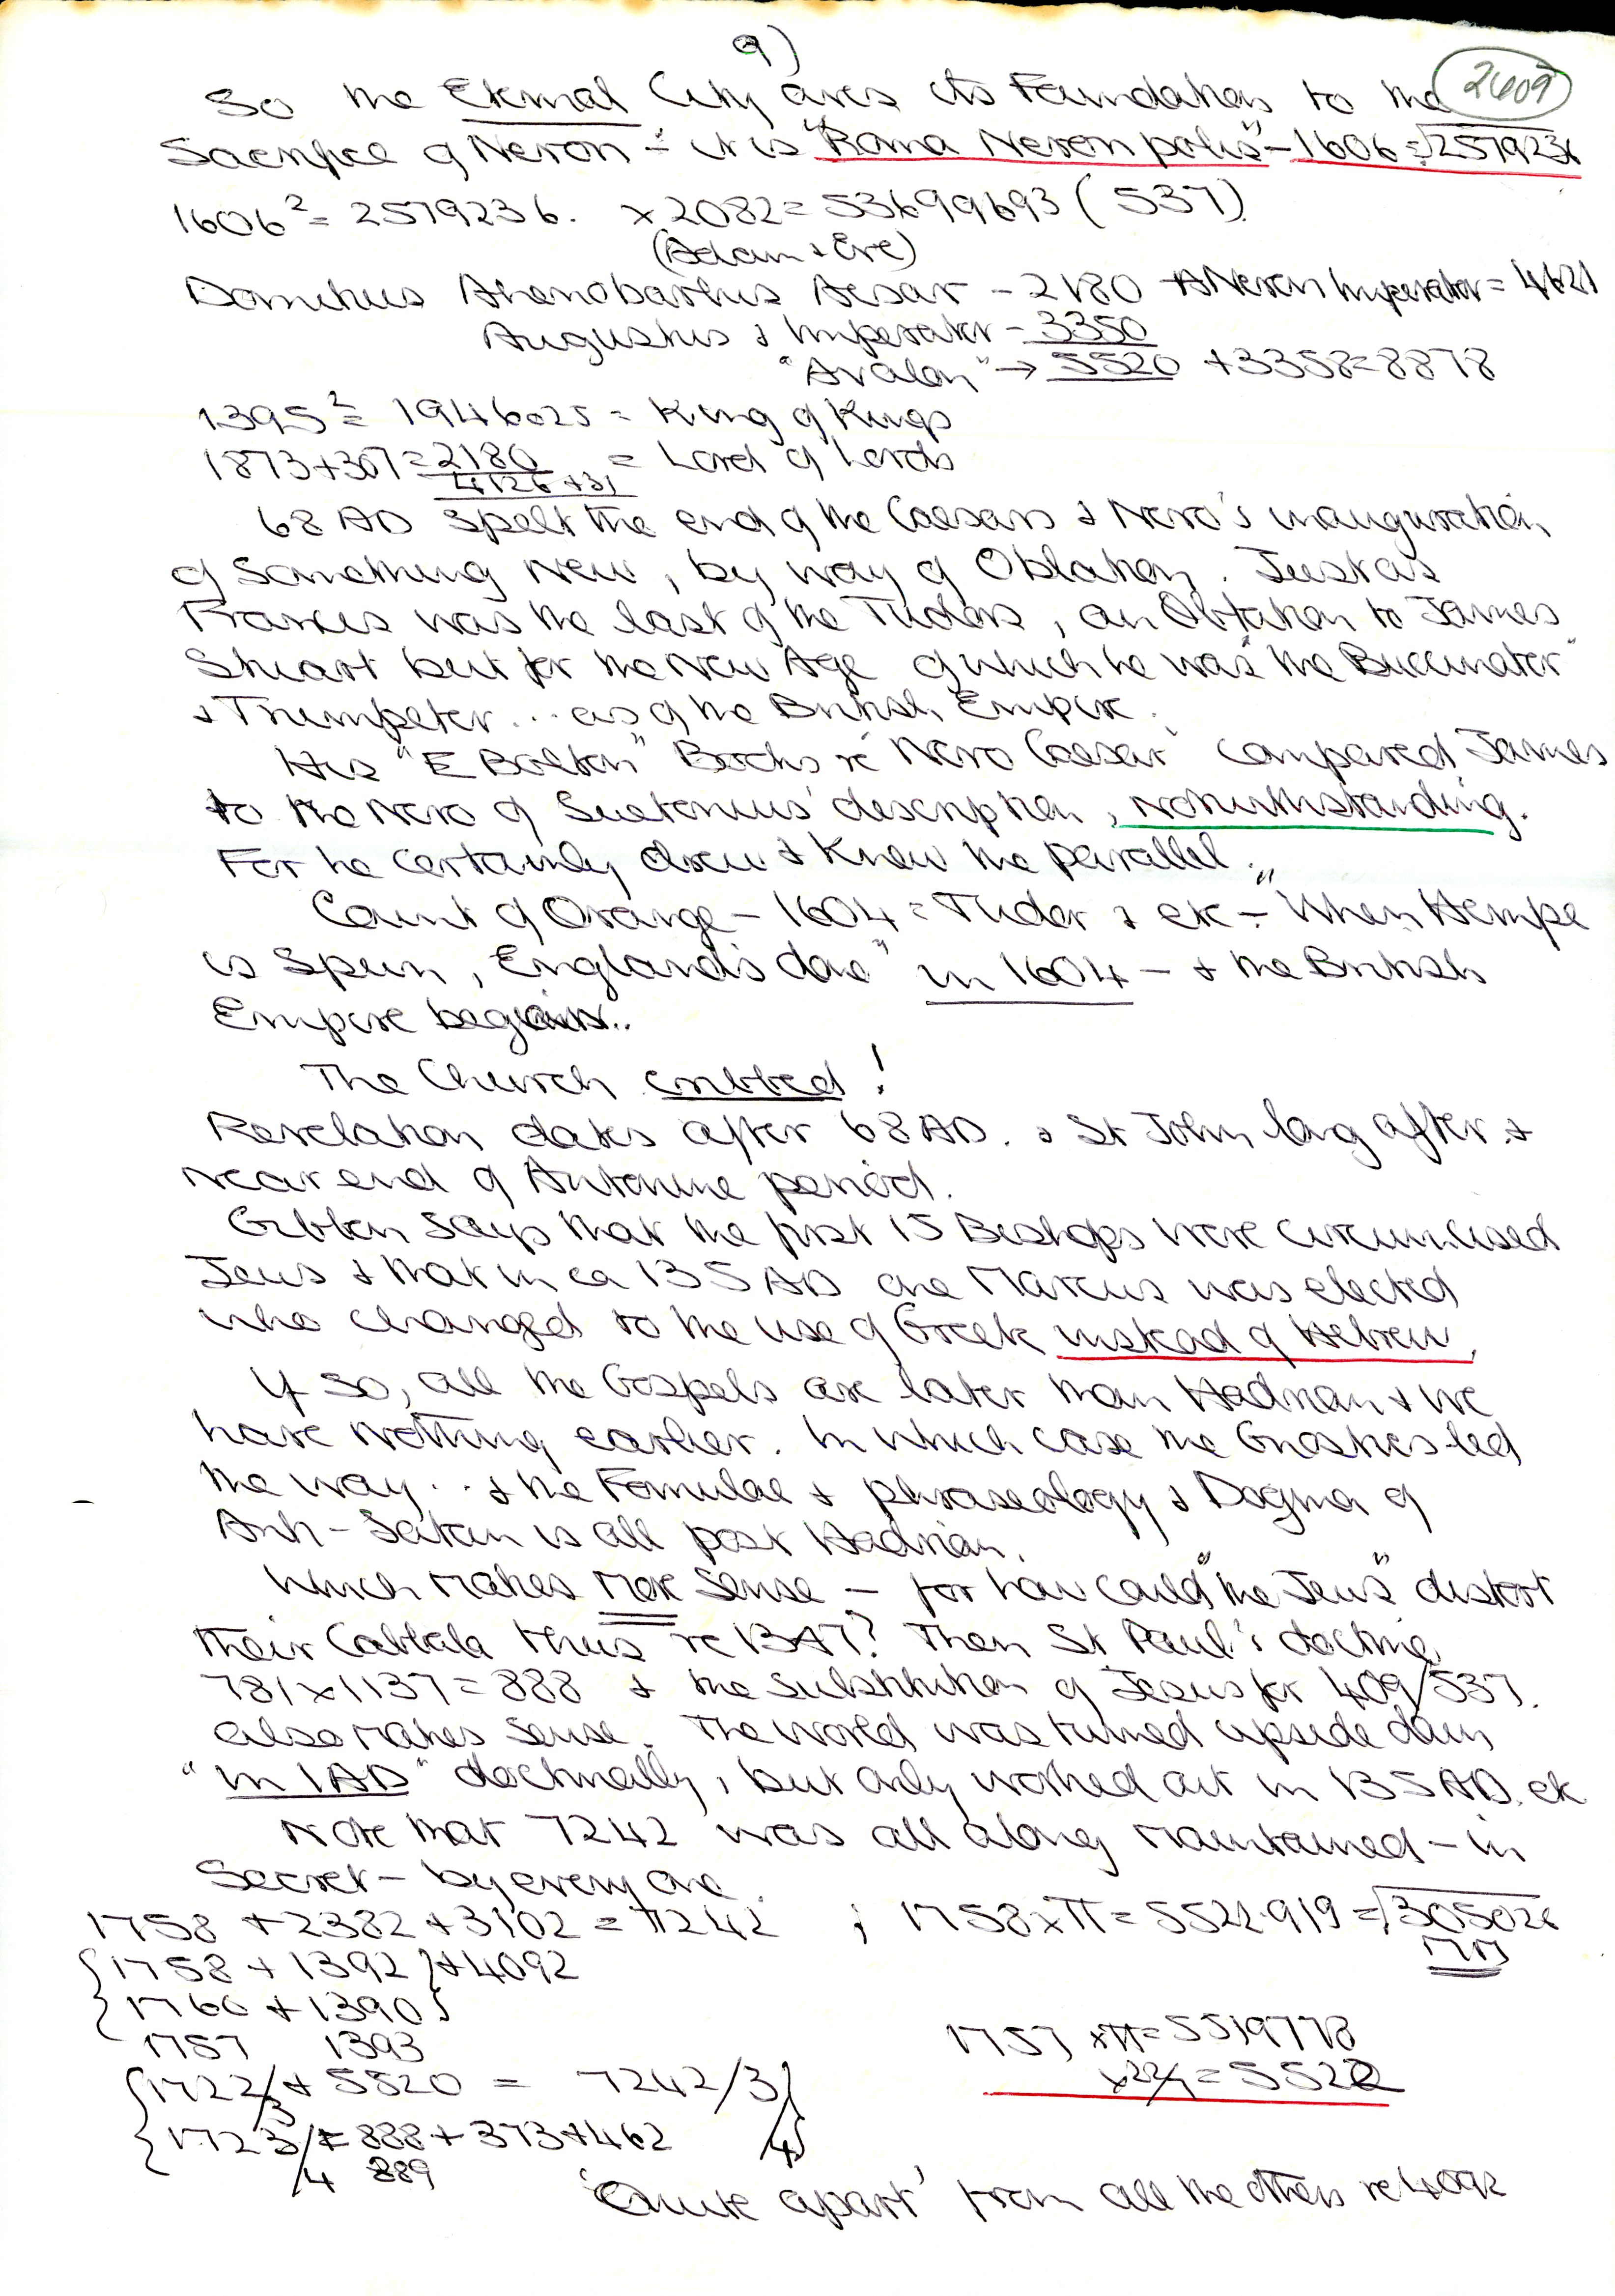 9)
2609
So the Eternal City owes its Foundation to the
Sacrifice of Neron - it is "Roma Neron polis" - 1606 = √2579236
1606² = 2579236. x 2082 = 53699693 (537)
(Adam & Eve)
Domitius Ahenobarbus Aesar - 2180 Neron Imperator = 4621
Augustus & Imperator - 3350
"Avalon" → 5520 + 3358 = 8878
1395² = 1946025 = King of Kings
1873 + 307 = 2180 = Lord of Lords
4126 + 31
68 AD spelt the end of the Caesars & Nero's inauguration
of Something New, by way of Oblation. Just as
Francis was the last of the Tudors, an Oblation to James
Stuart but for the New Age of which he was "the Buccinator"
& Trumpeter... as of the British Empire.
His "E Bolton" Books re 'Nero Caesar' compared James
to the Nero of Suetonius' description, notwithstanding.
For he certainly drew & knew the parallel.
Count of Orange - 1604 = Tudor & etc - "When Hempe
is Spun, England's done" in 1604 - & the British
Empire begins..
The Church cribbed!
Revelation dates after 68 AD. & St John long after &
near end of Antonine period.
Gibbon says that the first 15 Bishops were circumcised
Jews & that in ca 135 AD one Marcus was elected
who changed to the use of Greek instead of Hebrew.
If so, all the Gospels are later than Hadrian & we
have nothing earlier. In which case the Gnostics led
the way... & the Formulae & phraseology & Dogma of
Anti-Satan is all post Hadrian.
Which makes more sense - for how could "the Jews" distort
their Cabbala thus re 1347? Then St Paul's doctrine
781 x 1137 = 888 & the substitution of Jesus for 409/537.
also makes sense. The world was turned upside down
"in 1 AD" doctrinally, but only worked out in 135 AD. etc
Note that 7242 was all along maintained - in
Secret - by every one.
1758 + 2382 + 3102 = 7242 ; 1758 x π = 5522.919 = √305026
{1758 + 1392} + 4092
{1760 + 1390}
1757 1393
1757 x π = 5519778
x 22/7 = 5522
{1722/3 + 5520 = 7242/3}
{1723/4 = 888 + 373 + 462 /4}
889
'Quite apart' from all the others re 4092